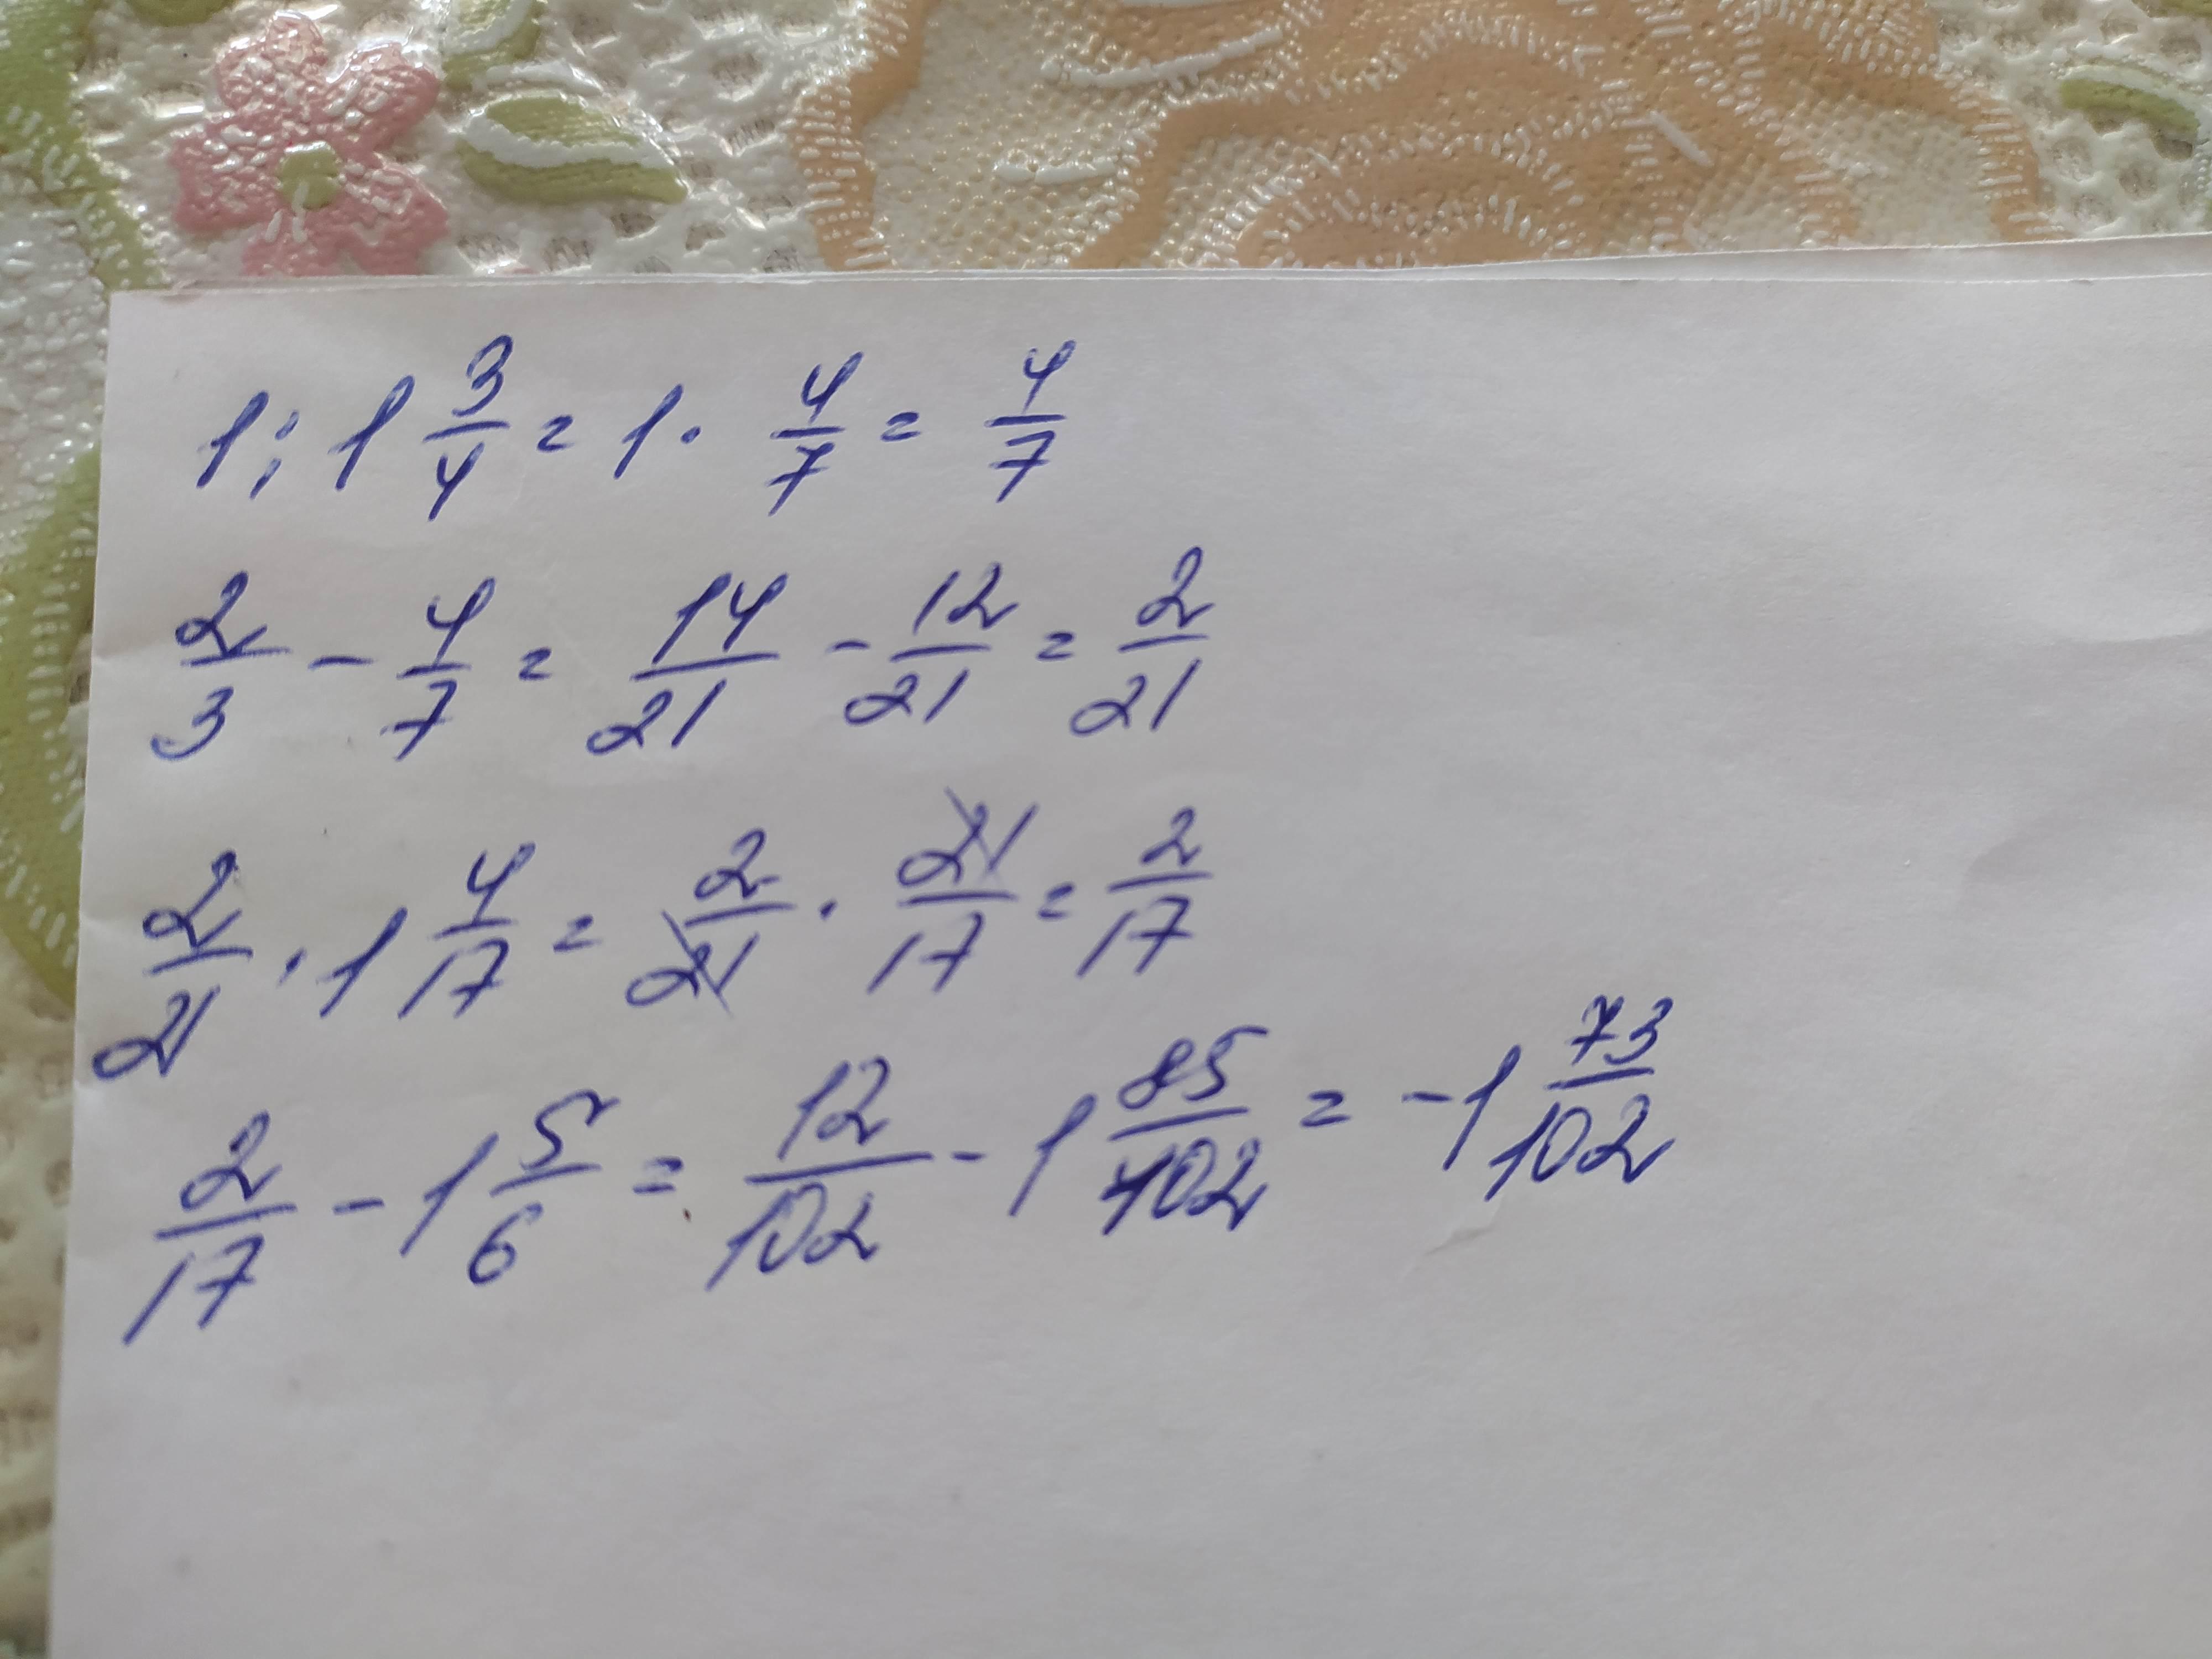 1 : 1 3/4 = 1 · 4/7 = 4/7
2/3 - 4/7 = 14/21 - 12/21 = 2/21
2/21 · 1 4/17 = 2/21 · 21/17 = 2/17
2/17 - 1 5/6 = 12/102 - 1 85/102 = -1 73/102